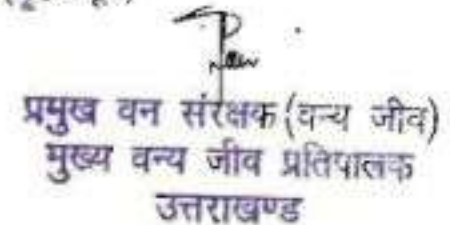 प्रमुख वन संरक्षक (वन्य जीव)
मुख्य वन्य जीव प्रतिपालक
उत्तराखण्ड